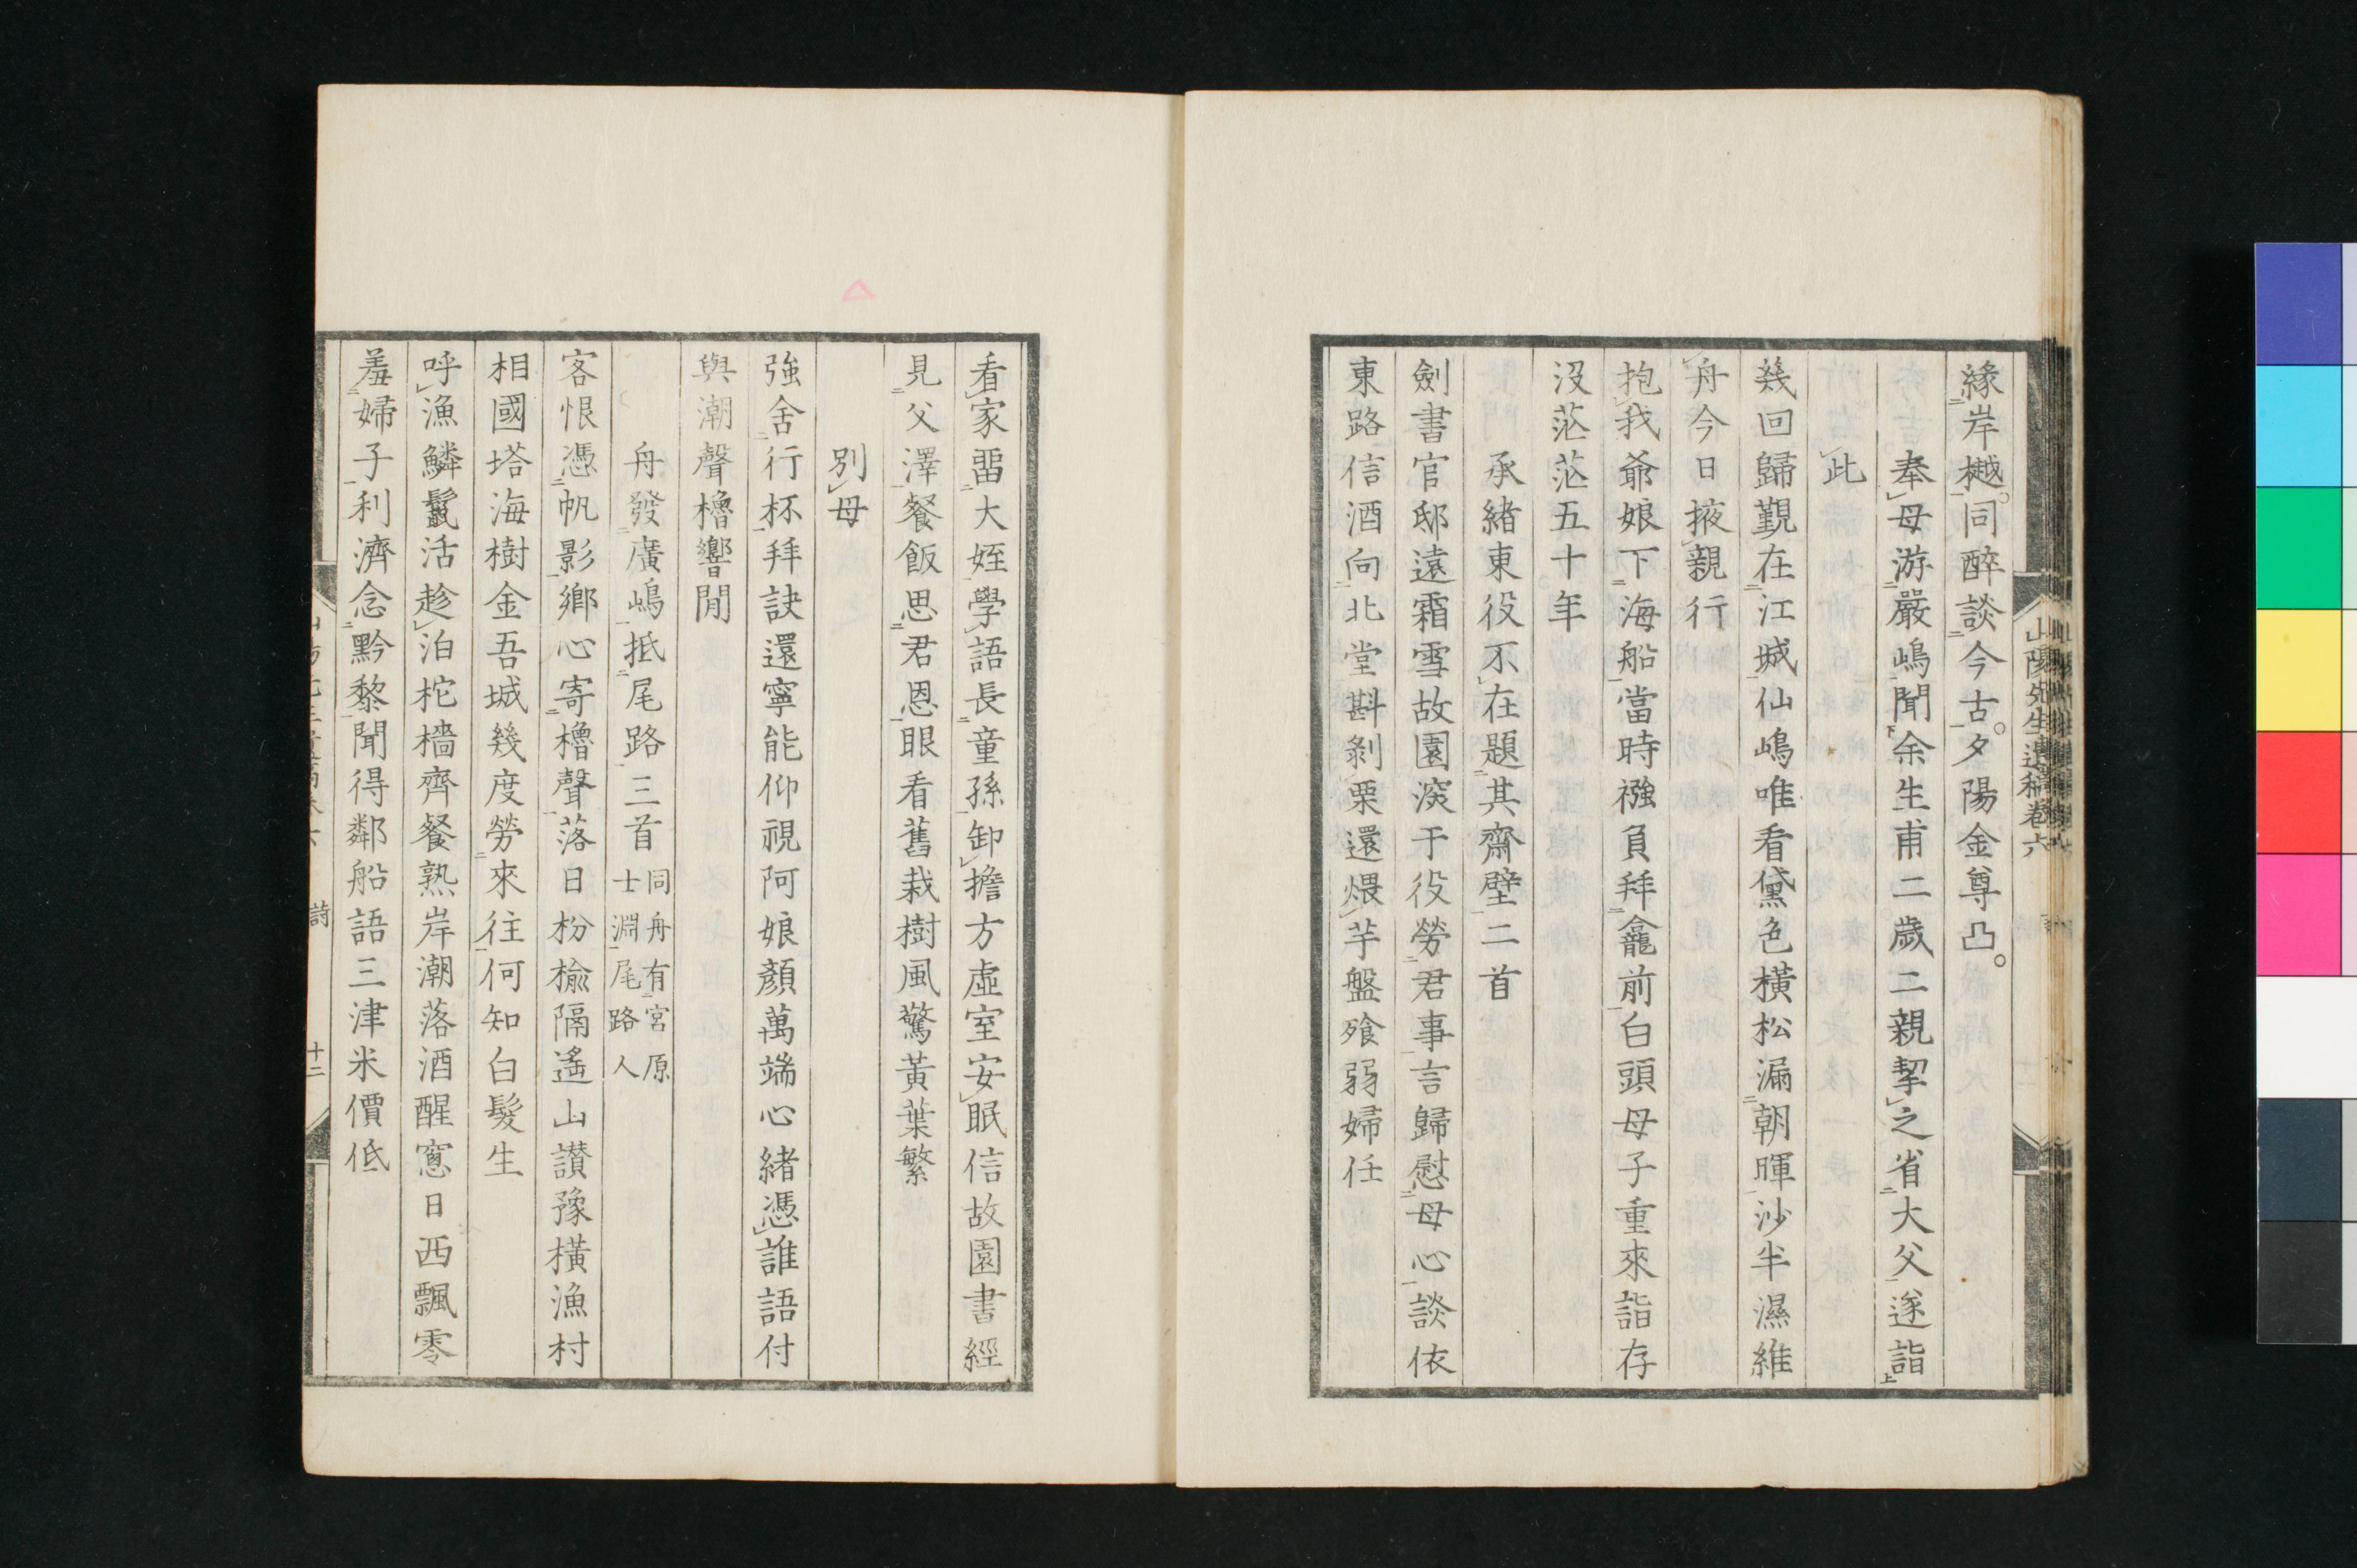 山陽先生遺稿卷六
緣岸樾。同醉談今古。夕陽金尊凸。
奉母游嚴嶋聞余生甫二歲二親挈之省大父遂詣
此
幾回歸覲在江城仙嶋唯看黛色橫松漏朝暉沙半濕維
舟今日掖親行
抱我爺娘下海船當時襁負拜龕前白頭母子重來詣存
沒茫茫五十年
承緒東役不在題其齋壁二首
劍書官邸遠霜雪故園深于役勞君事言歸慰母心談依
東路信酒向北堂斟剝栗還煨芋盤飱弱婦任
看家畱大姪學語長童孫卸擔方虛室安眠信故園書經
見父澤餐飯思君恩眼看舊栽樹風驚黃葉繁
別母
強舍行杯拜訣還寧能仰視阿娘顏萬端心緒憑誰語付
與潮聲櫓響閒
舟發廣嶋抵尾路三首 同舟有宮原
士淵尾路人
客恨憑帆影鄉心寄櫓聲落日枌榆隔遙山讃豫橫漁村
相國塔海樹金吾城幾度勞來往何知白髮生
呼漁鱗鬣活趁泊柁檣齊餐熟岸潮落酒醒窻日西飄零
羞婦子利濟念黔黎聞得鄰船語三津米價低
詩
十二